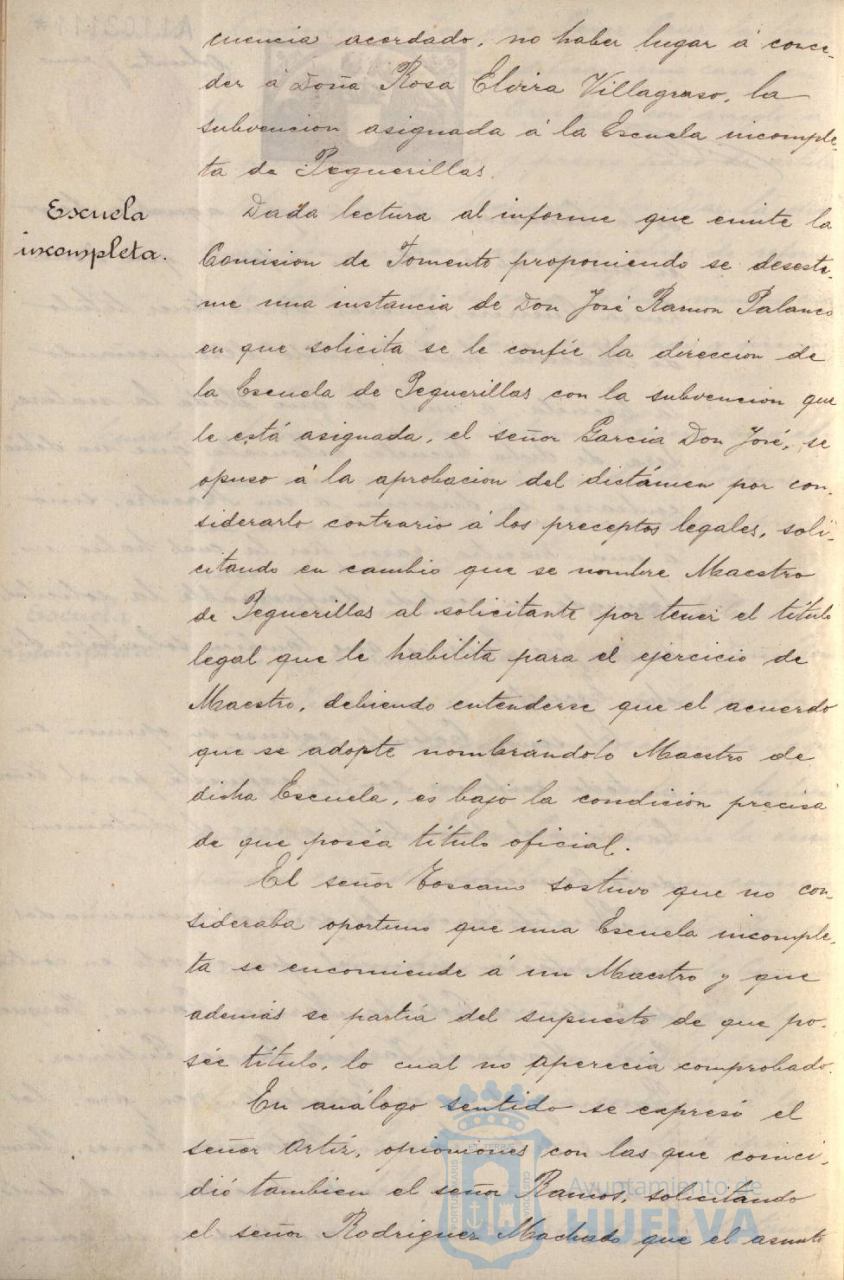 cuencia acordado, no haber lugar á conce-
der á Doña Rosa Elvira Villagraso, la
subvencion asignada á la Escuela incomple-
ta de Peguerillas.
Escuela
incompleta.
Dada lectura al informe que emite la
Comision de Fomento proponiendo se desesti-
me una instancia de Don José Ramon Palanco
en que solicita se le confíe la direccion de
la Escuela de Peguerillas con la subvencion que
le está asignada, el señor Garcia Don José, se
opuso á la aprobacion del dictámen por con-
siderarlo contrario á los preceptos legales, soli-
citando en cambio que se nombre Maestro
de Peguerillas al solicitante por tener el título
legal que le habilita para el ejercicio de
Maestro, debiendo entenderse que el acuerdo
que se adopte nombrándolo Maestro de
dicha Escuela, es bajo la condición precisa
de que poséa título oficial.
El señor Toscano sostuvo que no con-
sideraba oportuno que una Escuela incomple-
ta se encomiende á un Maestro y que
además se partía del supuesto de que po-
sée título, lo cual no aparecia comprobado.
En análogo sentido se expresó el
señor Ortiz, opiniones con las que coinci-
dió tambien el señor Ramos, solicitando
el señor Rodriguez Machado que el asunto
Ayuntamiento de
HUELVA